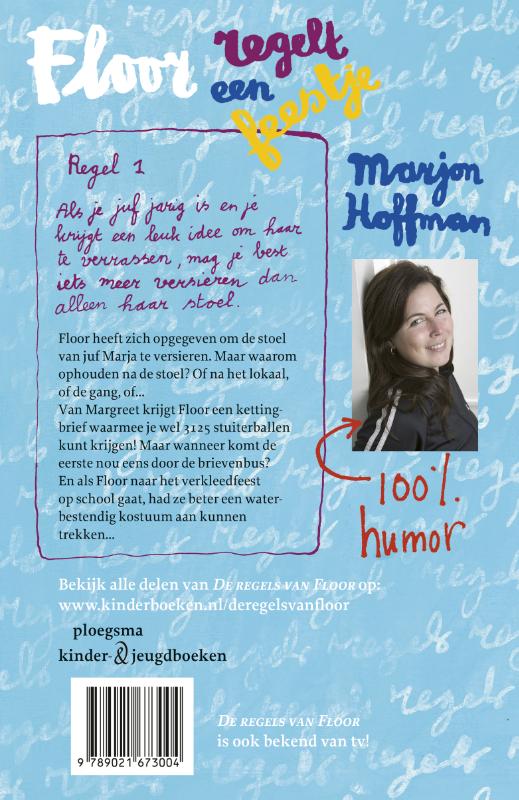 Floor regelt
een
feestje
Marjon
Hoffman
Regel 1
Als je juf jarig is en je
krijgt een leuk idee om haar
te verrassen, mag je best
iets meer versieren dan
alleen haar stoel.
Floor heeft zich opgegeven om de stoel
van juf Marja te versieren. Maar waarom
ophouden na de stoel? Of na het lokaal,
of de gang, of...
Van Margreet krijgt Floor een ketting-
brief waarmee je wel 3125 stuiterballen
kunt krijgen! Maar wanneer komt de
eerste nou eens door de brievenbus?
En als Floor naar het verkleedfeest
op school gaat, had ze beter een water-
bestendig kostuum aan kunnen
trekken...
100%
humor
Bekijk alle delen van De regels van Floor op:
www.kinderboeken.nl/deregelsvanfloor
ploegsma
kinder- & jeugdboeken
9 789021 673004
De regels van Floor
is ook bekend van tv!